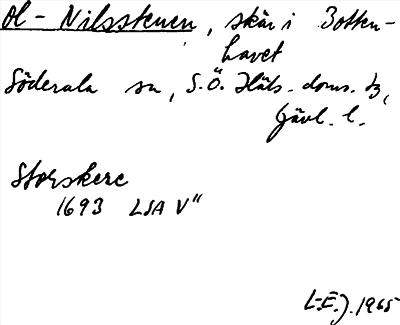 Ol-Nilsstenen, skär i Botten-
havet
Söderala sn, S.Ö. Häls. doms. tg,
Gävl. l.
Storskere
1693 LSA V"
L-E.J. 1965